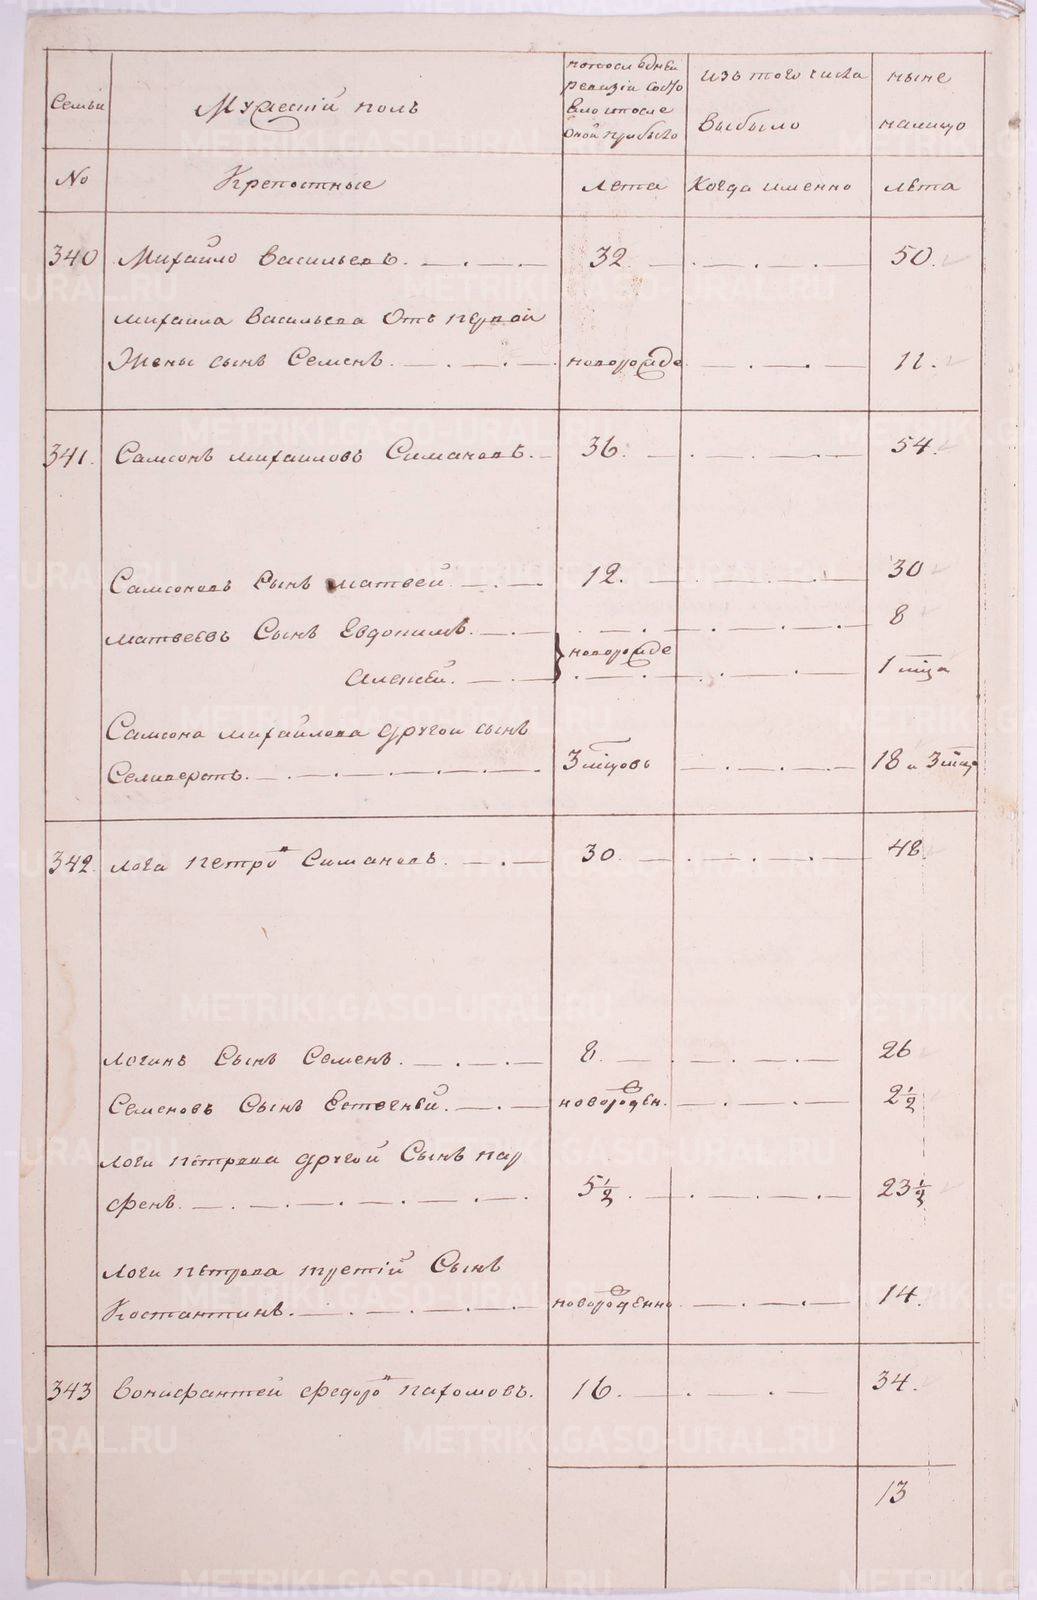 Семьи
Мужескiй полъ
по последней
ревизiи состо
яло и после
оной прибыло
изъ того числа
выбыло
ныне
налицо
No
Крепостные
лета
Когда именно
лѣта
340 Михайло Васильевъ. 32 50.
Михаила Васильева Отъ первой
Жены сынъ Семенъ. новорожде 11.
341. Самсонъ Михаиловъ Симановъ. 36. 54.
Самсоновъ Сынъ Матвей 12. 30
Матвеевъ Сынъ Евдокимъ. 8
новорожде
Алексей. 1 мца
Самсона Михайлова другой сынъ
Селиверстъ. 3 мцовъ 18 и 3 мцо
342. Лога Петровъ Симановъ. 30. 48.
Логинъ Сынъ Семенъ. 8. 26
Семеновъ Сынъ Евстегней. новорожден. 2 1/2
Логи Петрова другой Сынъ пар
фенъ. 5 1/2. 23 1/2
Логи Петрова третiй Сынъ
Костантинъ. новорожденно 14.
343 Вонифантей Федоровъ Пахомовъ. 16. 34.
13
METRIKI.GASO-URAL.RU